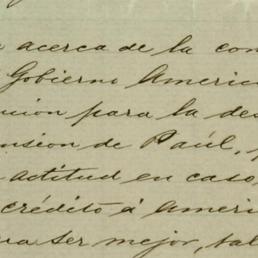 acerca de la con
Gobierno Americ
ción para la des
nsión de Paúl,
actitud en caso,
crédito á Ameri
na ser mejor, tal